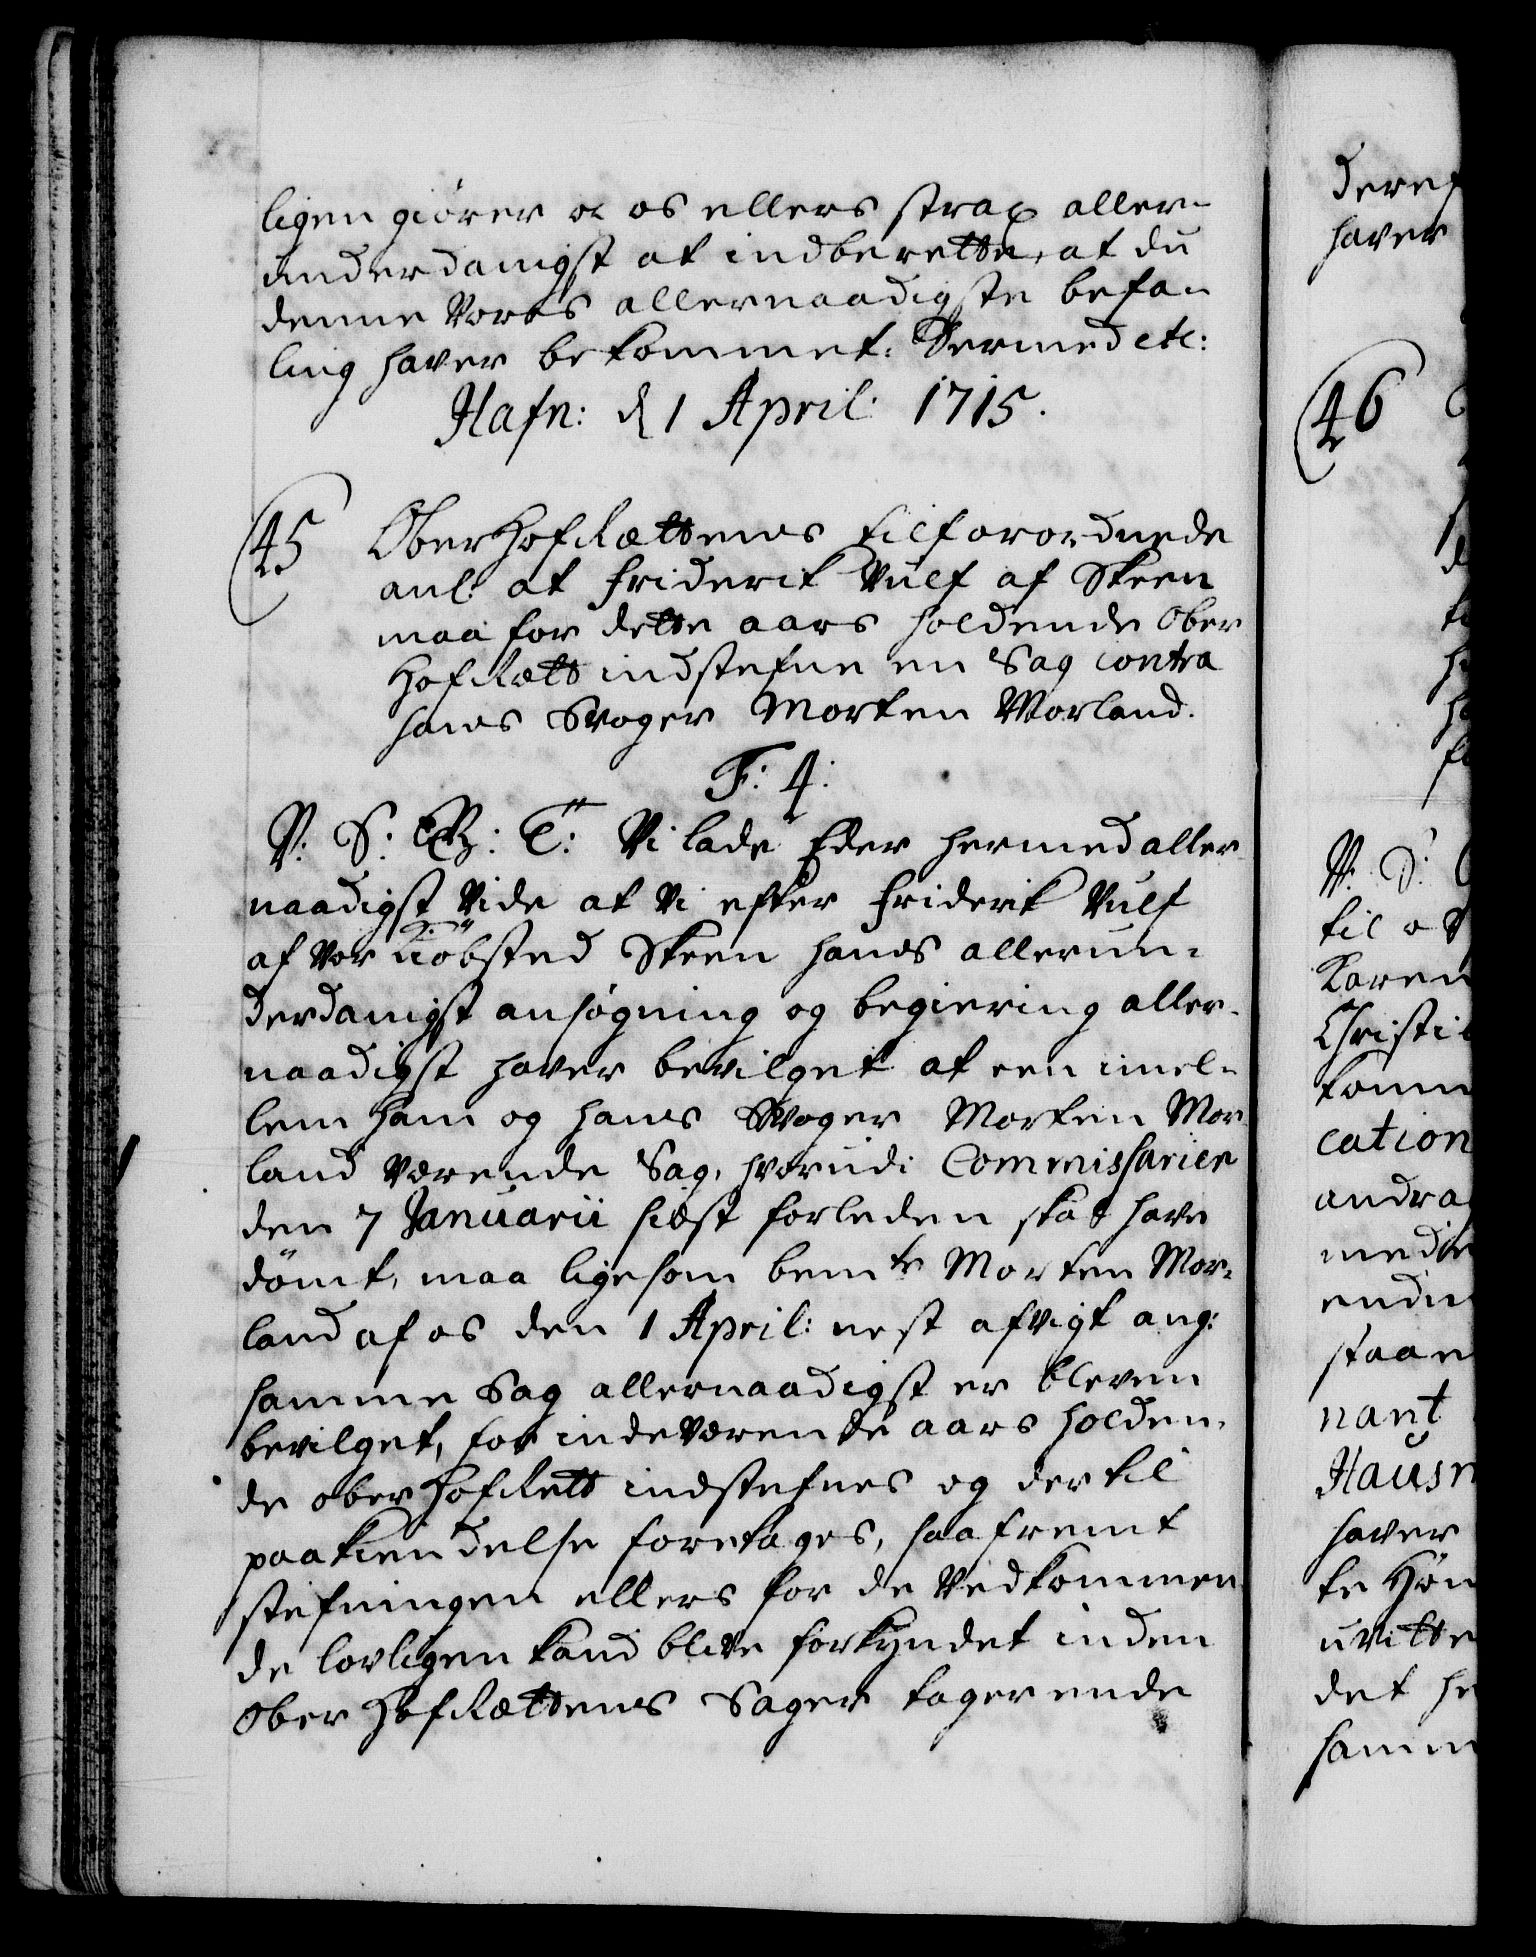 ligen giörer oc os ellers strax aller-
underdanigst at indberette, at du
denne Vores allernaadigste befa-
ling haver bekommet. Dermed etc:
Hafn: d 1 April: 1715.
45 OberHofRættens tilforordnede
anl: at Friderik Vulf af Skeen
maa for dette aars holdende Ober
HofRætt indstefne en Sag contra
hans Svoger Morten Morland.
F: 4:
V: S: G: T: Vi lade Eder hermed aller-
naadigst Vide at Vi efter Friderik Vulf
af Vor Kiöbsted Skeen hans allerun-
derdanigst ansøgning og begiering aller-
naadigst haver bevilget at een imel-
lem ham og hans Svoger Morten Mor-
land Værende Sag, hvorudi Commissarier
den 7 Januarii sidst forleden skal have
dömt, maa ligesom bemte Morten Mor-
land af os den 1 April: nest afvigt ang:
samme Sag allernaadigst er bleven
bevilget, for indeværende aars holden-
de ober HofRett indstefnes og der til
paakiendelse foretages, saafremt
stefningen ellers for de Vedkommen
de lovligen kand blive forkyndet inden
Ober HofRættens Sager tager ende
haver
46
V: S:
til o
Karen
Christi
komm
cation
andra
medde
endn
staae
nant
Hausm
haver
te Høn
det he
samm